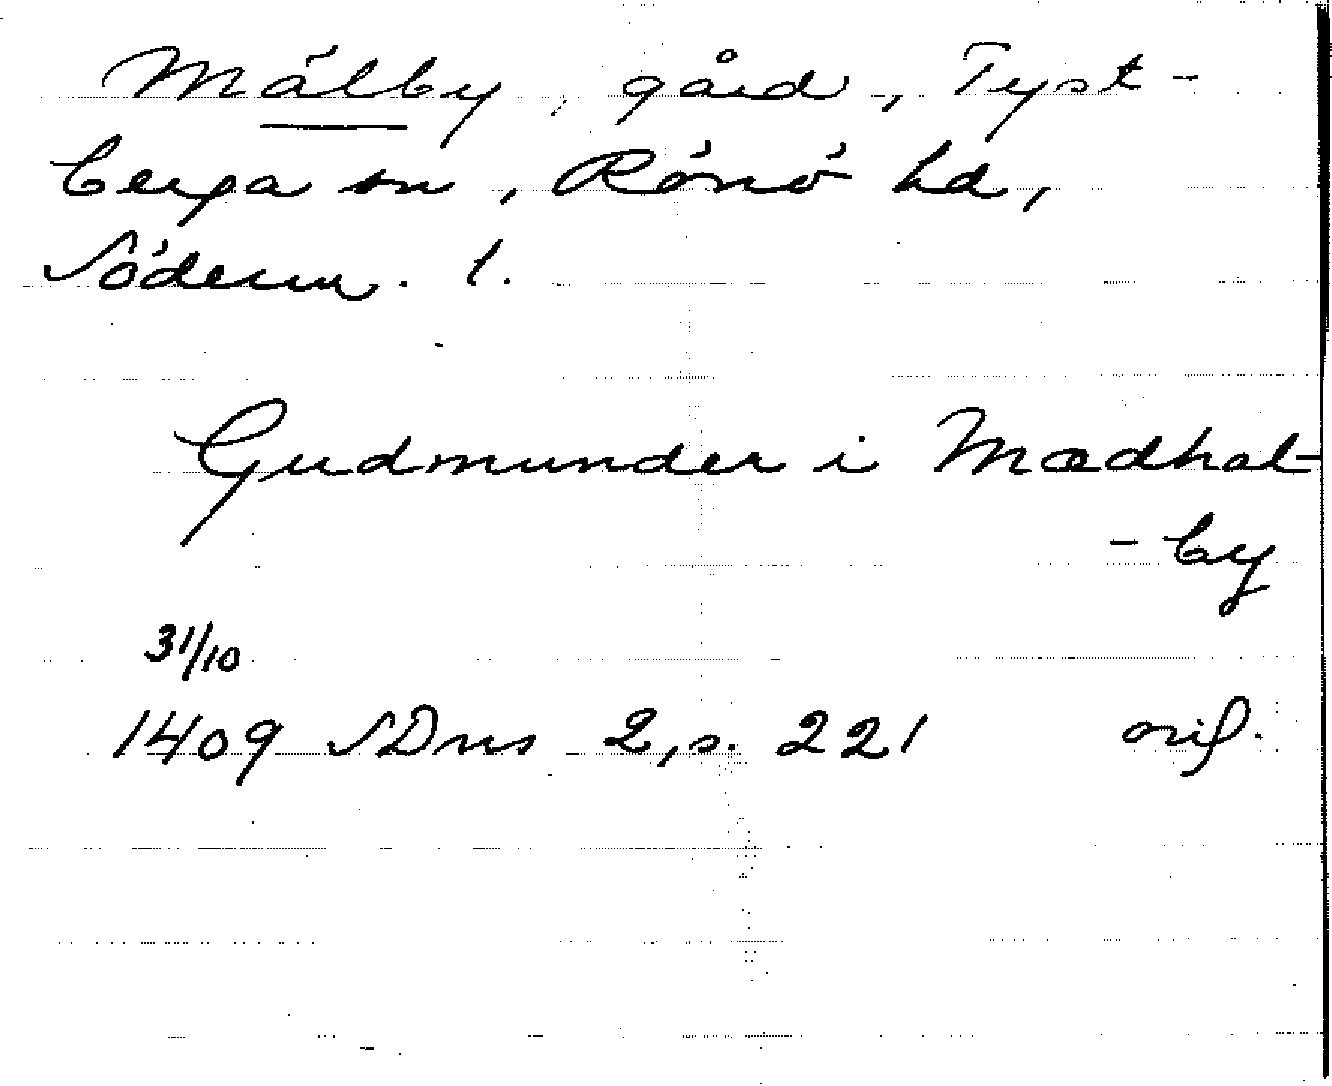 Mälby, gård, Tyst-
berga sn, Rönö hd,
Söderm. l.
Gudmunder i Mædhal-
-by
31/10
1409 SDns 2, s. 221 orig.